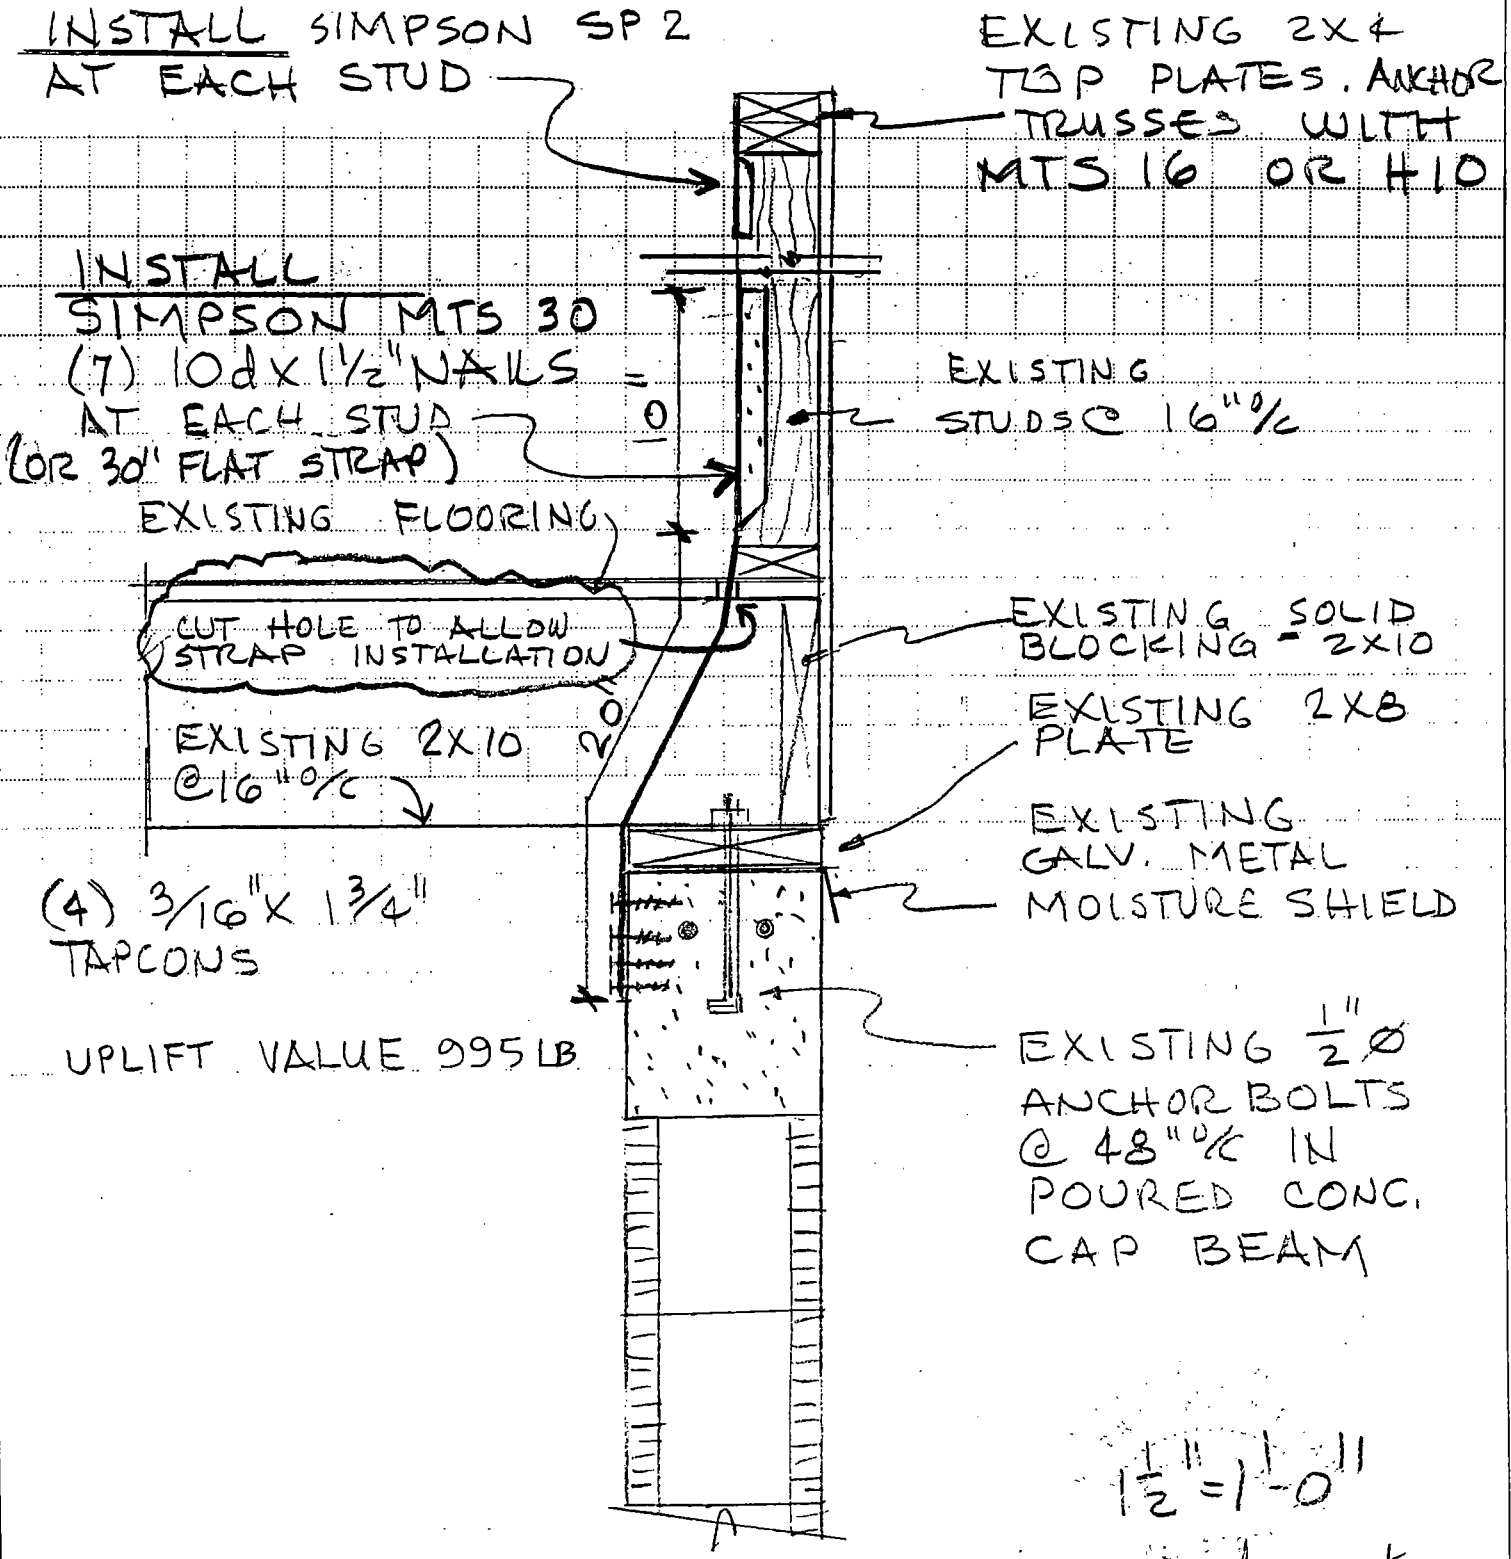 INSTALL SIMPSON SP2
AT EACH STUD
EXISTING 2X4
TOP PLATES. ANCHOR
TRUSSES WITH
MTS 16 OR H10
INSTALL
SIMPSON MTS 30
(7) 10d X 1 1/2" NAILS
AT EACH STUD
(OR 30" FLAT STRAP)
10"
EXISTING
STUDS @ 16" O/C
EXISTING FLOORING
CUT HOLE TO ALLOW
STRAP INSTALLATION
20
EXISTING 2X10
@ 16" O/C
EXISTING SOLID
BLOCKING - 2X10
EXISTING 2X8
PLATE
EXISTING
GALV. METAL
MOISTURE SHIELD
(4) 3/16" X 1 3/4"
TAPCONS
UPLIFT VALUE 995 LB
EXISTING 1/2" Ø
ANCHOR BOLTS
@ 48" O/C IN
POURED CONC.
CAP BEAM
1 1/2" = 1'-0"